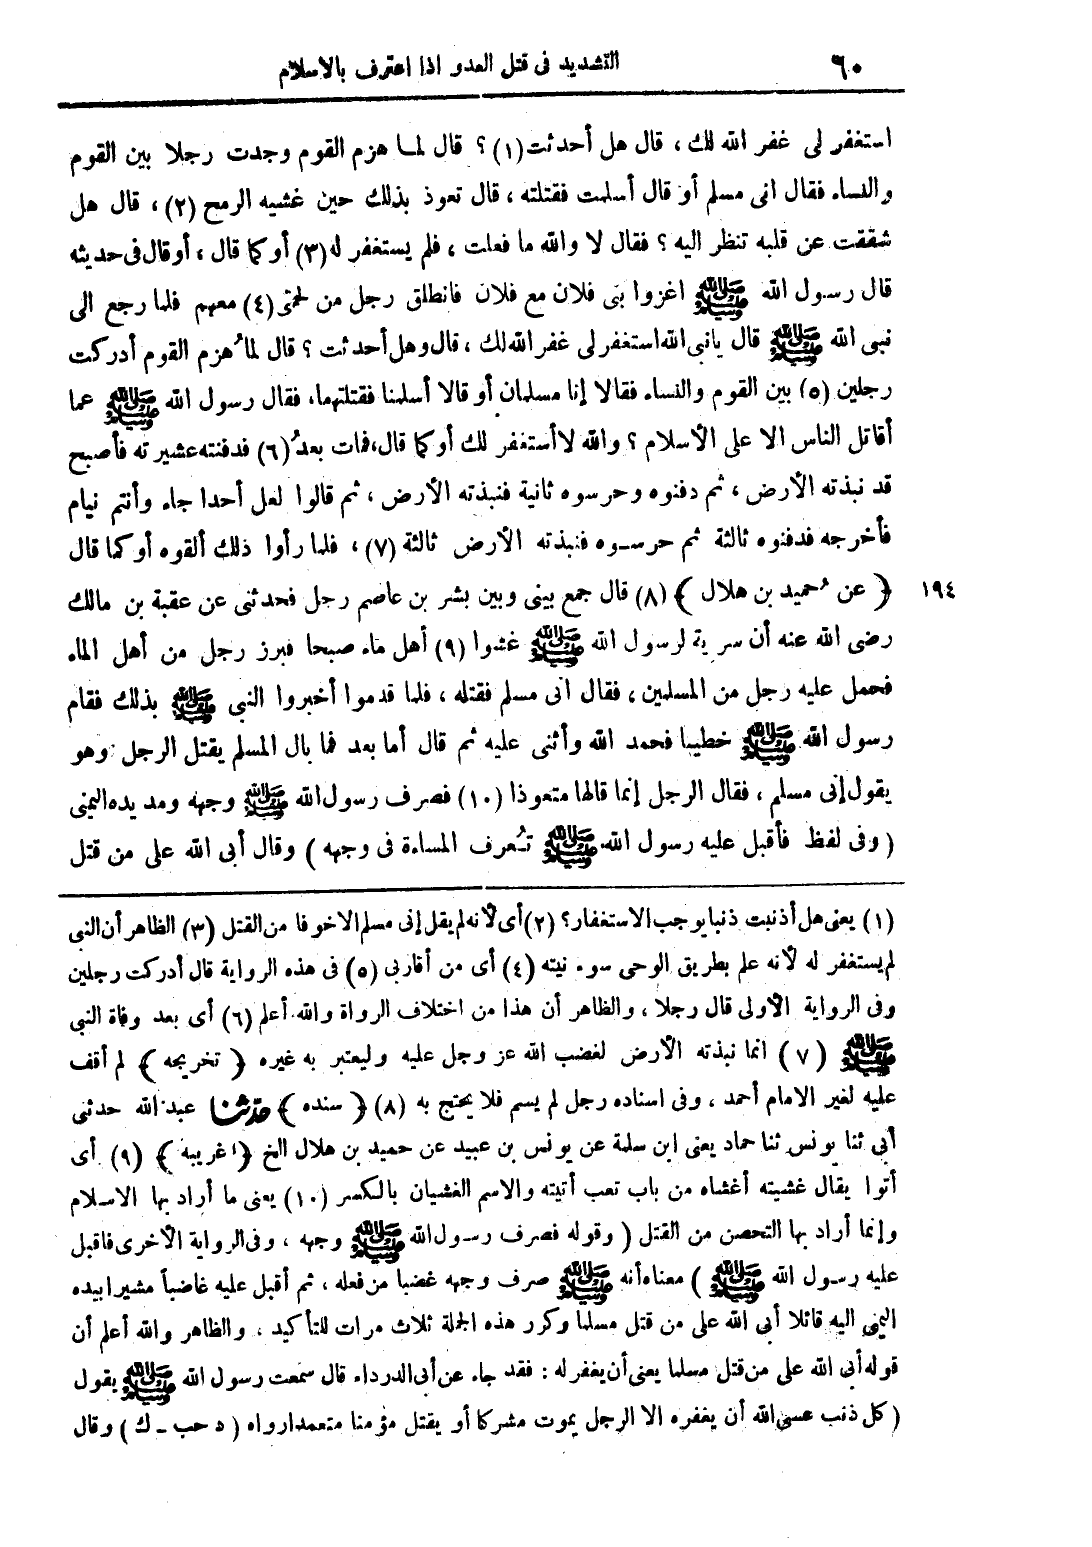 ٦٠ التشديد فى قتل العدو اذا اعترف بالاسلام
استغفر لى غفر الله لك ، قال هل أحدثت (١) ؟ قال لما هزم القوم وجدت رجلا بين القوم
والنساء فقال انى مسلم أو قال أسلمت فقتلته ، قال تعوذ بذلك حين غشيه الرمح (٢) ، قال هل
شققت عن قلبه تنظر اليه ؟ فقال لا والله ما فعلت ، فلم يستغفر له (٣) أو كما قال ، أو قال فى حديثه
قال رسول الله ﷺ اغزوا بنى فلان مع فلان فانطلق رجل من لحمتى (٤) معهم فلما رجع الى
نبى الله ﷺ قال يانبى الله استغفر لى غفر الله لك ، قال وهل أحدثت ؟ قال لما هُزم القوم أدركت
رجلين (٥) بين القوم والنساء فقالا إنا مسلمان أو قالا أسلمنا فقتلتهما، فقال رسول الله ﷺ عما
أقاتل الناس الا على الأسلام ؟ والله لا أستغفر لك أو كما قال، فمات بعدُ (٦) فدفنته عشيرته فأصبح
قد نبذته الأرض ، ثم دفنوه وحرسوه ثانية فنبذته الأرض ، ثم قالوا لعل أحدا جاء وأنتم نيام
فأخرجه فدفنوه ثالثة ثم حرسوه فنبذته الأرض ثالثة (٧) ، فلما رأوا ذلك ألقوه أو كما قال
١٩٤ ﴿ عن حُميد بن هلال ﴾ (٨) قال جمع بينى وبين بشر بن عاصم رجل فحدثنى عن عقبة بن مالك
رضى الله عنه أن سرية لرسول الله ﷺ غشوا (٩) أهل ماء صبحا فبرز رجل من أهل الماء
فحمل عليه رجل من المسلمين ، فقال انى مسلم فقتله ، فلما قدموا أخبروا النبى ﷺ بذلك فقام
رسول الله ﷺ خطيبا فحمد الله وأثنى عليه ثم قال أما بعد فما بال المسلم يقتل الرجل وهو
يقول إنى مسلم ، فقال الرجل إنما قالها متعوذا (١٠) فصرف رسول الله ﷺ وجهه ومد يده اليمنى
( وفى لفظ فأقبل عليه رسول الله ﷺ تُعرف المساءة فى وجهه ) وقال أبى الله على من قتل
(١) يعنى هل أذنبت ذنبا يوجب الاستغفار؟ (٢) أى لأنه لم يقل إنى مسلم الا خوفا من القتل (٣) الظاهر أن النبى
لم يستغفر له لأنه علم بطريق الوحى سوء نيته (٤) أى من أقاربى (٥) فى هذه الرواية قال أدركت رجلين
وفى الرواية الأولى قال رجلا ، والظاهر أن هذا من اختلاف الرواة والله أعلم (٦) أى بعد وفاة النبى
ﷺ (٧) انما نبذته الأرض لغضب الله عز وجل عليه وليعتبر به غيره ﴿ تخريجه ﴾ لم أقف
عليه لغير الامام أحمد ، وفى اسناده رجل لم يسم فلا يحتج به (٨) ﴿ سنده ﴾ حدثنا عبد الله حدثنى
أبى ثنا يونس ثنا حماد يعنى ابن سلمة عن يونس بن عبيد عن حميد بن هلال الخ ﴿ غريبه ﴾ (٩) أى
أتوا يقال غشيته أغشاه من باب تعب أتيته والاسم الغشيان بالكسر (١٠) يعنى ما أراد بها الاسلام
وإنما أراد بها التحصن من القتل ( وقوله فصرف رسول الله ﷺ وجهه ، وفى الرواية الأخرى فاقبل
عليه رسول الله ﷺ ) معناه أنه ﷺ صرف وجهه غضبا من فعله ، ثم أقبل عليه غاضباً مشيرا بيده
اليمنى اليه قائلا أبى الله على من قتل مسلما وكرر هذه الجملة ثلاث مرات للتأكيد ، والظاهر والله أعلم أن
قوله أبى الله على من قتل مسلما يعنى أن يغفر له : فقد جاء عن أبى الدرداء قال سمعت رسول الله ﷺ يقول
( كل ذنب عسى الله أن يغفره الا الرجل يموت مشركا أو يقتل مؤمنا متعمدا رواه ( د حب ـ ك ) وقال